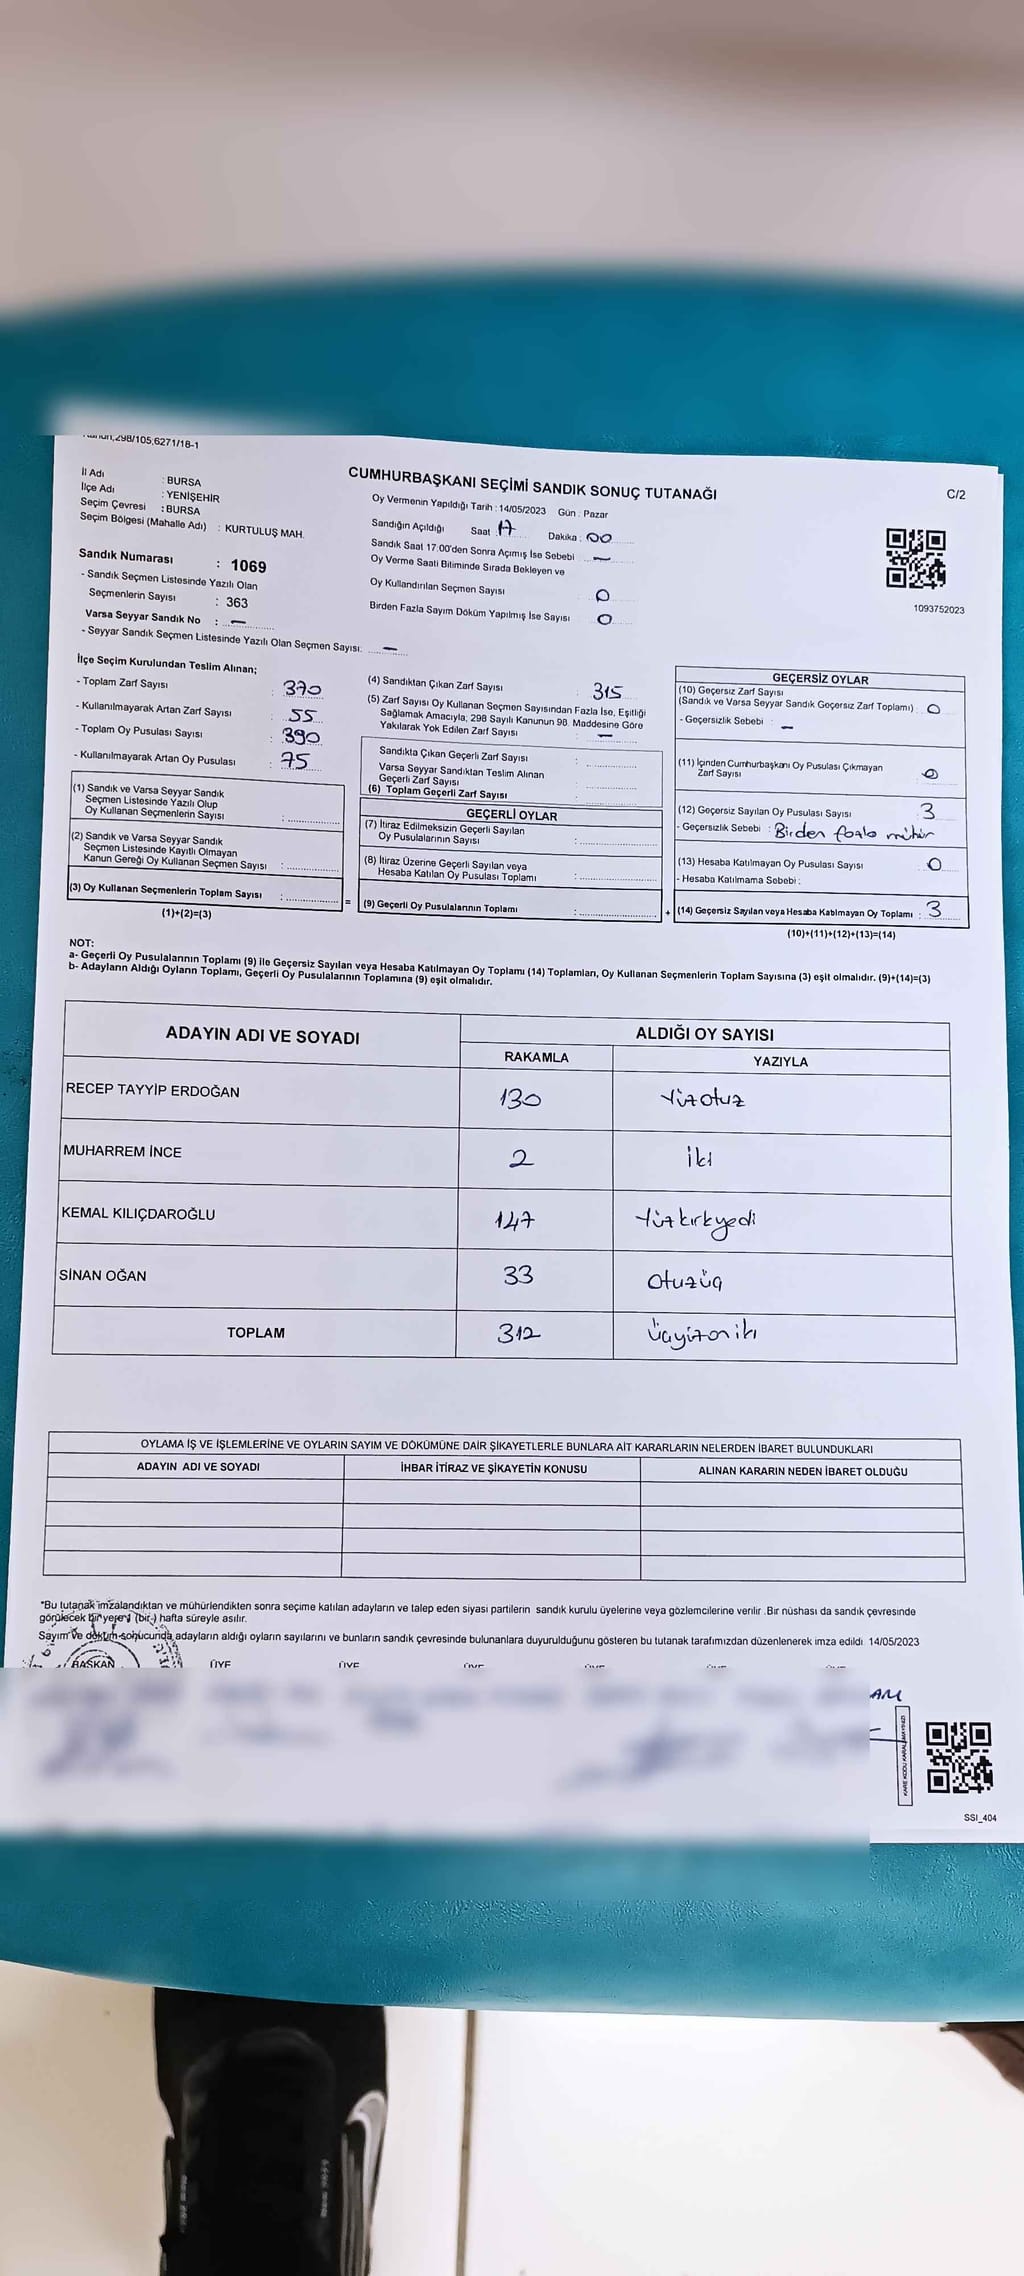 298/105,6271/18-1
CUMHURBAŞKANI SEÇİMİ SANDIK SONUÇ TUTANAĞI
C/2
İl Adı : BURSA
İlçe Adı : YENİŞEHİR
Seçim Çevresi : BURSA
Seçim Bölgesi (Mahalle Adı) : KURTULUŞ MAH.
Sandık Numarası : 1069
- Sandık Seçmen Listesinde Yazılı Olan
Seçmenlerin Sayısı : 363
Varsa Seyyar Sandık No : —
- Seyyar Sandık Seçmen Listesinde Yazılı Olan Seçmen Sayısı: —
Oy Vermenin Yapıldığı Tarih : 14/05/2023 Gün : Pazar
Sandığın Açıldığı Saat : 17 Dakika : 00
Sandık Saat 17:00'den Sonra Açımış İse Sebebi : —
Oy Verme Saati Bitiminde Sırada Bekleyen ve
Oy Kullandırılan Seçmen Sayısı : 0
Birden Fazla Sayım Döküm Yapılmış İse Sayısı : 0
1093752023
İlçe Seçim Kurulundan Teslim Alınan;
- Toplam Zarf Sayısı : 370
- Kullanılmayarak Artan Zarf Sayısı : 55
- Toplam Oy Pusulası Sayısı : 390
- Kullanılmayarak Artan Oy Pusulası : 75
(1) Sandık ve Varsa Seyyar Sandık
Seçmen Listesinde Yazılı Olup
Oy Kullanan Seçmenlerin Sayısı :
(2) Sandık ve Varsa Seyyar Sandık
Seçmen Listesinde Kayıtlı Olmayan
Kanun Gereği Oy Kullanan Seçmen Sayısı :
(3) Oy Kullanan Seçmenlerin Toplam Sayısı :
(1)+(2)=(3)
(4) Sandıktan Çıkan Zarf Sayısı : 315
(5) Zarf Sayısı Oy Kullanan Seçmen Sayısından Fazla İse, Eşitliği
Sağlamak Amacıyla; 298 Sayılı Kanunun 98. Maddesine Göre
Yakılarak Yok Edilen Zarf Sayısı : —
Sandıkta Çıkan Geçerli Zarf Sayısı :
Varsa Seyyar Sandıktan Teslim Alınan
Geçerli Zarf Sayısı :
(6) Toplam Geçerli Zarf Sayısı :
GEÇERLİ OYLAR
(7) İtiraz Edilmeksizin Geçerli Sayılan
Oy Pusulalarının Sayısı :
(8) İtiraz Üzerine Geçerli Sayılan veya
Hesaba Katılan Oy Pusulası Toplamı :
= (9) Geçerli Oy Pusulalarının Toplamı :
GEÇERSİZ OYLAR
(10) Geçersiz Zarf Sayısı
(Sandık ve Varsa Seyyar Sandık Geçersiz Zarf Toplamı) : 0
- Geçersizlik Sebebi : —
(11) İçinden Cumhurbaşkanı Oy Pusulası Çıkmayan
Zarf Sayısı : 0
(12) Geçersiz Sayılan Oy Pusulası Sayısı : 3
- Geçersizlik Sebebi : Birden fazla mühür
(13) Hesaba Katılmayan Oy Pusulası Sayısı : 0
- Hesaba Katılmama Sebebi :
+ (14) Geçersiz Sayılan veya Hesaba Katılmayan Oy Toplamı : 3
(10)+(11)+(12)+(13)=(14)
NOT:
a- Geçerli Oy Pusulalarının Toplamı (9) ile Geçersiz Sayılan veya Hesaba Katılmayan Oy Toplamı (14) Toplamları, Oy Kullanan Seçmenlerin Toplam Sayısına (3) eşit olmalıdır. (9)+(14)=(3)
b- Adayların Aldığı Oyların Toplamı, Geçerli Oy Pusulalarının Toplamına (9) eşit olmalıdır.
ADAYIN ADI VE SOYADI ALDIĞI OY SAYISI
RAKAMLA YAZIYLA
RECEP TAYYİP ERDOĞAN 130 Yüzotuz
MUHARREM İNCE 2 iki
KEMAL KILIÇDAROĞLU 147 Yüzkırkyedi
SİNAN OĞAN 33 Otuzüç
TOPLAM 312 Üçyüzoniki
OYLAMA İŞ VE İŞLEMLERİNE VE OYLARIN SAYIM VE DÖKÜMÜNE DAİR ŞİKAYETLERLE BUNLARA AİT KARARLARIN NELERDEN İBARET BULUNDUKLARI
ADAYIN ADI VE SOYADI İHBAR İTİRAZ VE ŞİKAYETİN KONUSU ALINAN KARARIN NEDEN İBARET OLDUĞU
*Bu tutanak imzalandıktan ve mühürlendikten sonra seçime katılan adayların ve talep eden siyasi partilerin sandık kurulu üyelerine veya gözlemcilerine verilir. Bir nüshası da sandık çevresinde
görülecek bir yere 1 (bir) hafta süreyle asılır.
Sayım ve döküm sonucunda adayların aldığı oyların sayılarını ve bunların sandık çevresinde bulunanlara duyurulduğunu gösteren bu tutanak tarafımızdan düzenlenerek imza edildi. 14/05/2023
BAŞKAN ÜYE ÜYE ÜYE ÜYE ÜYE ÜYE
KARE KODU KARALAMAYINIZ
SSI_404